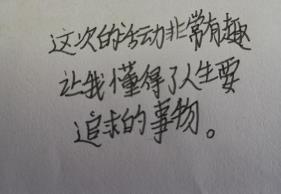 这次的活动非常有趣
让我懂得了人生要
追求的事物。